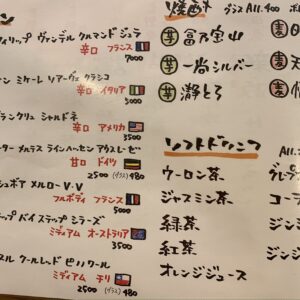 焼酎 グラス All.400
ィリップ ヴァンデル クルマンド ジュラ
辛口 フランス
7000
ン ミケーレ リアーヴェ クラシコ
辛口 イタリア
3000
ブランクリュ シャルドネ
辛口 アメリカ
3500
ーター メルテス ラインヘッセン アウスレーゼ
甘口 ドイツ
2500 (グラス) 480
シュボア メルロー V.V
フルボディ フランス
5000
ップ バイ ステップ シラーズ
ミディアム オーストラリア
3500
スル クールレッド ピノノワール
ミディアム チリ
2500 (グラス) 480
芋 富乃宝山
芋 一尚シルバー
芋
ソフトドリンク
ウーロン茶
ジャスミン茶
緑茶
紅茶
オレンジジュース
All.
グレープ
コーラ
ジン
ジン